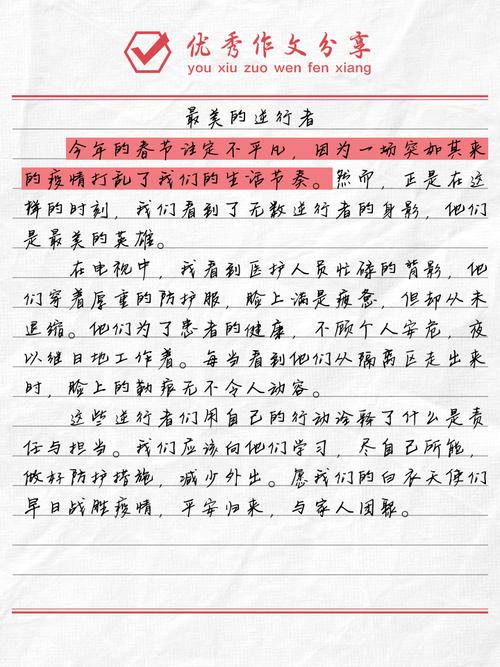 优秀作文分享
you xiu zuo wen fen xiang
最美的逆行者
今年的春节注定不平凡，因为一场突如其来
的疫情打乱了我们的生活节奏。然而，正是在这
样的时刻，我们看到了无数逆行者的身影，他们
是最美的英雄。
在电视中，我看到医护人员忙碌的背影，他
们穿着厚重的防护服，脸上满是疲惫，但却从未
退缩。他们为了患者的健康，不顾个人安危，夜
以继日地工作着。每当看到他们从隔离区走出来
时，脸上的勒痕无不令人动容。
这些逆行者们用自己的行动诠释了什么是责
任与担当。我们应该向他们学习，尽自己所能，
做好防护措施，减少外出。愿我们的白衣天使们
早日战胜疫情，平安归来，与家人团聚。